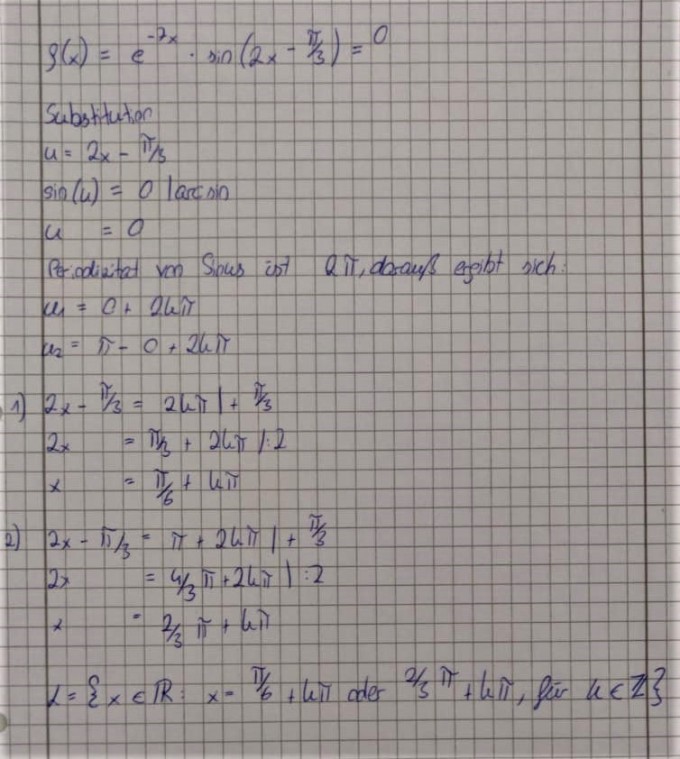 f(x) = e^{-2x} · sin(2x - π/3) = 0
Substitution
u = 2x - π/3
sin(u) = 0 | arcsin
u = 0
Periodizität von Sinus ist 2π, darauß ergibt sich:
u₁ = 0 + 2kπ
u₂ = π - 0 + 2kπ
1) 2x - π/3 = 2kπ | + π/3
2x = π/3 + 2kπ | :2
x = π/6 + kπ
2) 2x - π/3 = π + 2kπ | + π/3
2x = 4/3 π + 2kπ | :2
x = 2/3 π + kπ
L = {x ∈ ℝ: x = π/6 + kπ oder 2/3 π + kπ, für k ∈ ℤ}